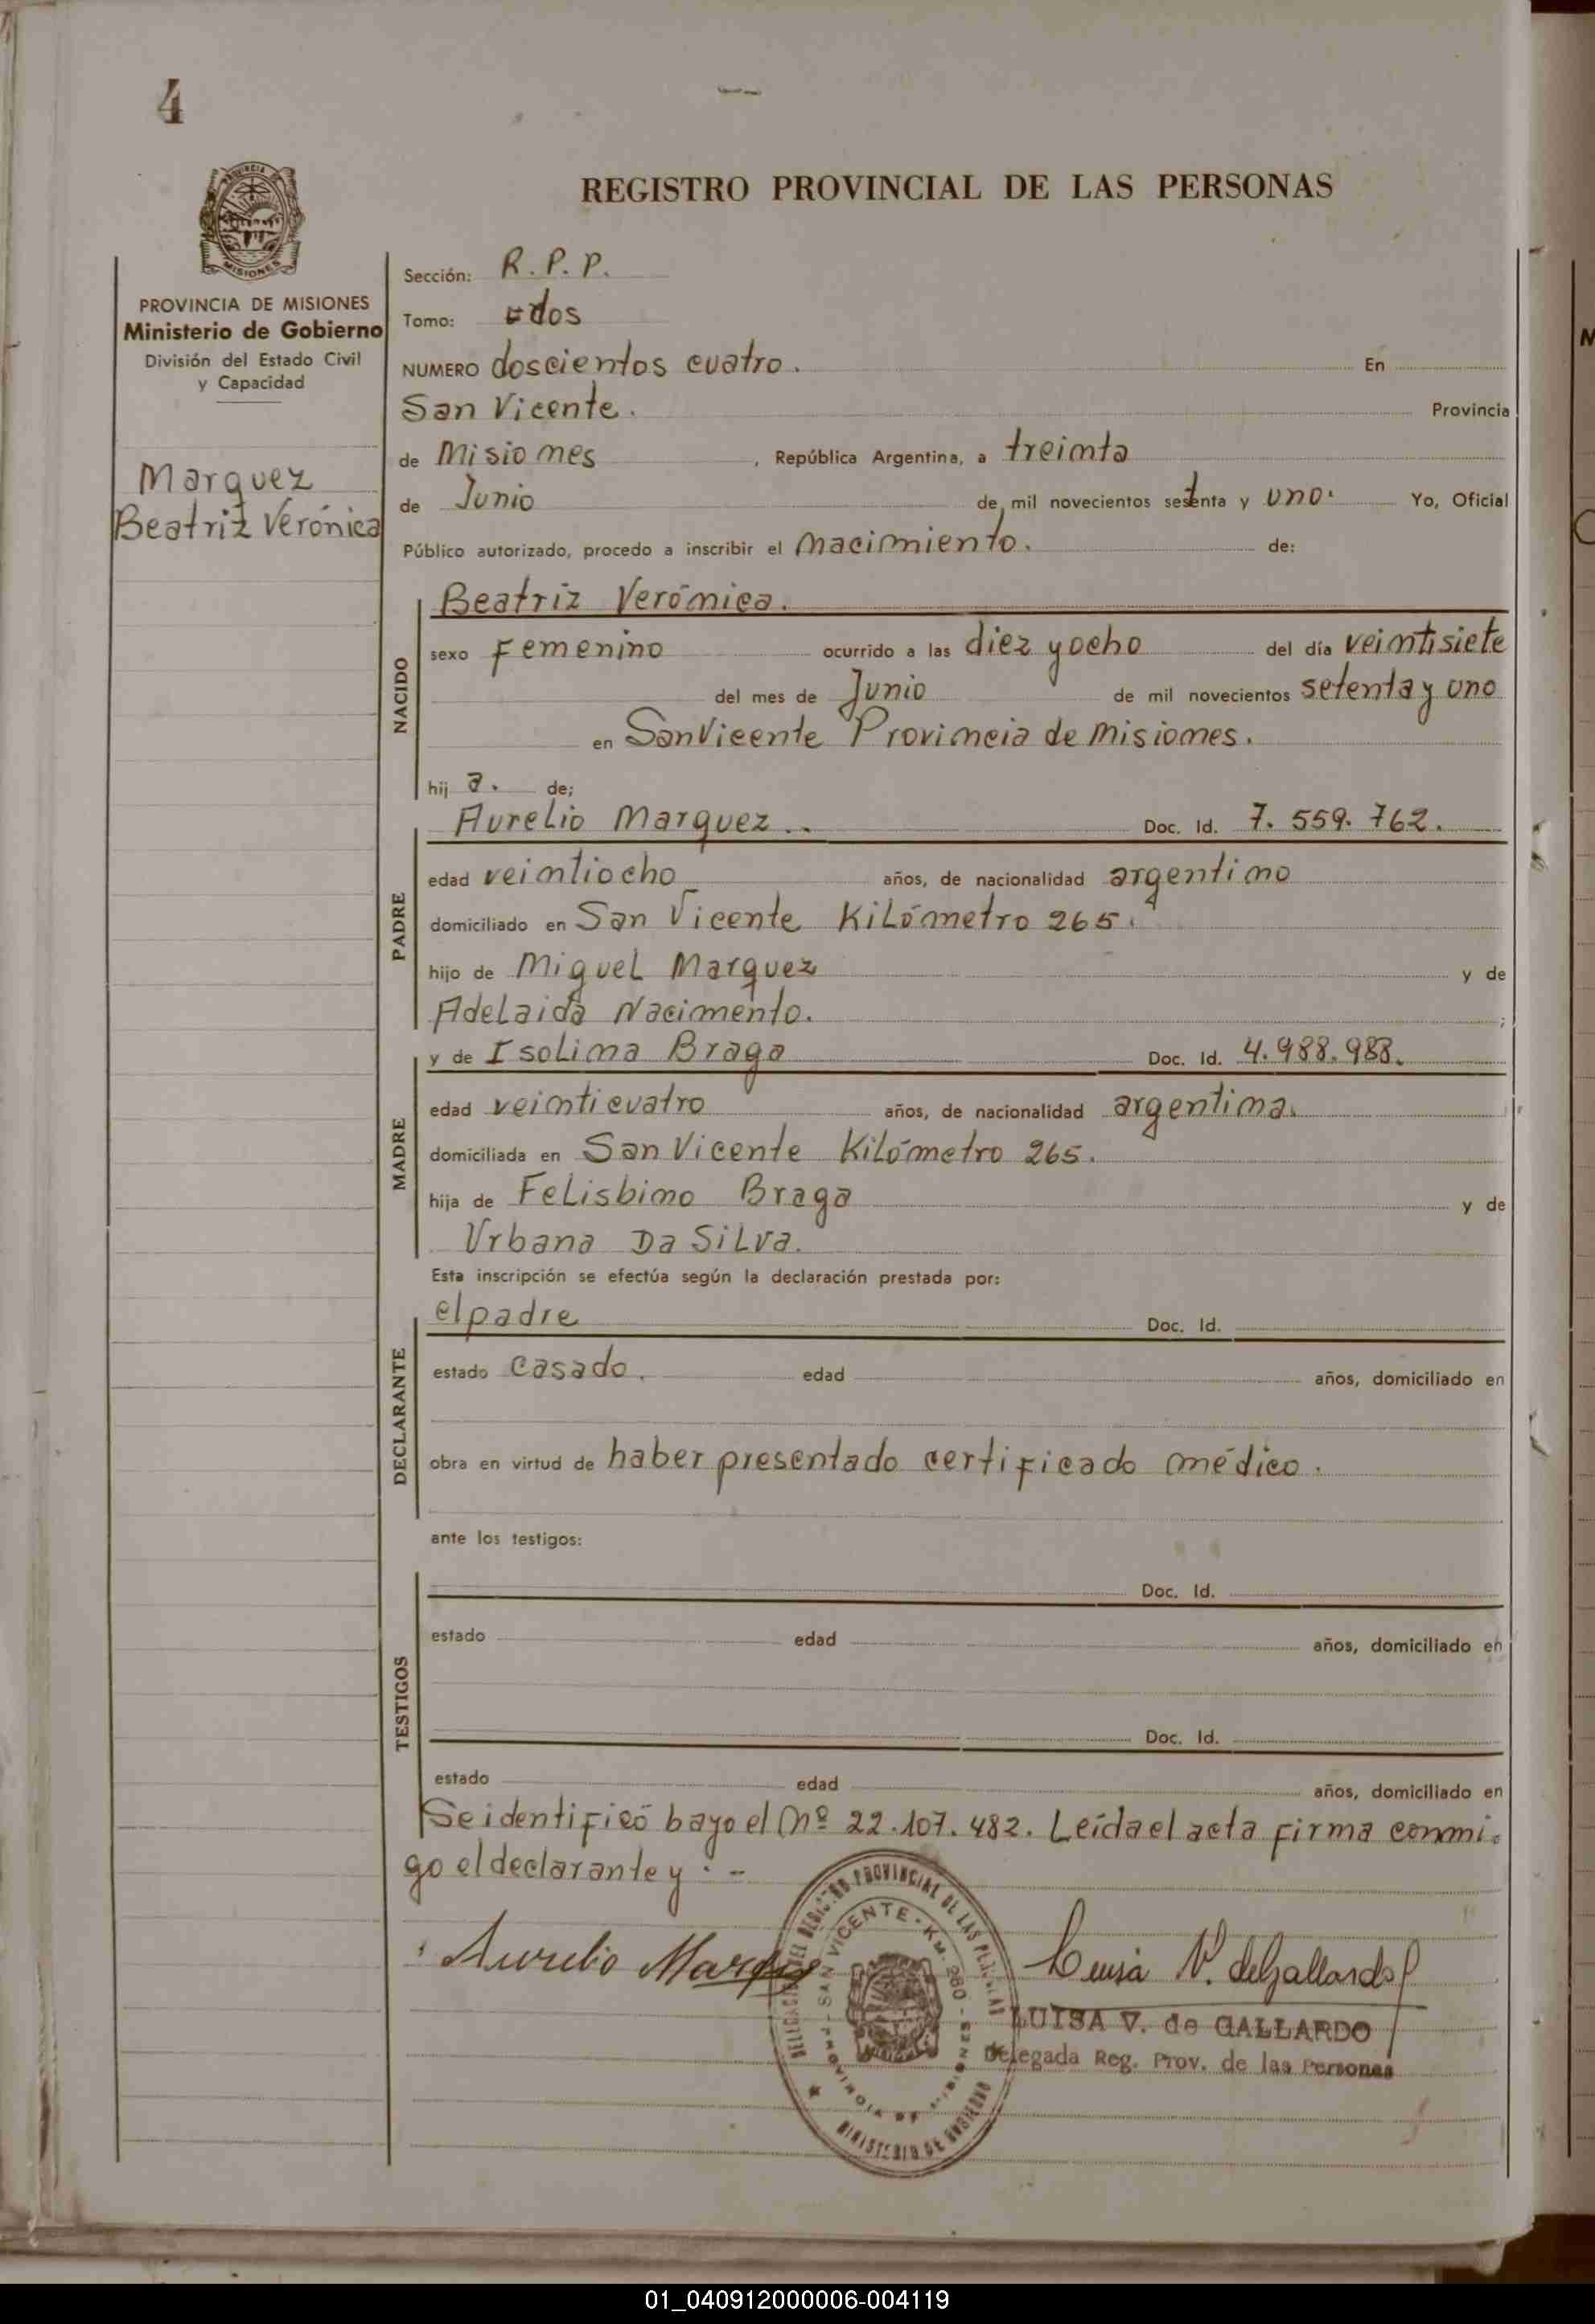 4
REGISTRO PROVINCIAL DE LAS PERSONAS
PROVINCIA DE MISIONES
Ministerio de Gobierno
División del Estado Civil
y Capacidad
Marquez
Beatriz Verónica
Sección: R. P. P.
Tomo: dos
NUMERO doscientos cuatro. En
San Vicente. Provincia
de Misiones, República Argentina, a treinta
de Junio de mil novecientos setenta y uno. Yo, Oficial
Público autorizado, procedo a inscribir el nacimiento. de:
NACIDO
Beatriz Verónica.
sexo Femenino ocurrido a las diez y ocho del día veintisiete
del mes de Junio de mil novecientos setenta y uno
en San Vicente Provincia de Misiones.
hij a. de;
PADRE
Aurelio Marquez.. Doc. Id. 7.559.762.
edad veintiocho años, de nacionalidad argentino
domiciliado en San Vicente Kilómetro 265.
hijo de Miguel Marquez y de
Adelaida Nacimento. ;
MADRE
y de Isolina Braga Doc. Id. 4.988.988.
edad veinticuatro años, de nacionalidad argentina.
domiciliada en San Vicente Kilómetro 265.
hija de Felisbino Braga y de
Urbana Da Silva.
Esta inscripción se efectúa según la declaración prestada por:
DECLARANTE
el padre Doc. Id.
estado casado. edad años, domiciliado en
obra en virtud de haber presentado certificado médico.
ante los testigos:
TESTIGOS
Doc. Id.
estado edad años, domiciliado en
Doc. Id.
estado edad años, domiciliado en
Se identificó bajo el nº 22.107.482. Leída el acta firma conmi-
go el declarante y : -
Aurelio Marquez
Luisa V. de Gallardo
LUISA V. de GALLARDO
Delegada Reg. Prov. de las Personas
DELEGACION DEL REGISTRO PROVINCIAL DE LAS PERSONAS
SAN VICENTE - KM. 260 - MISIONES
MINISTERIO DE GOBIERNO
01_040912000006-004119